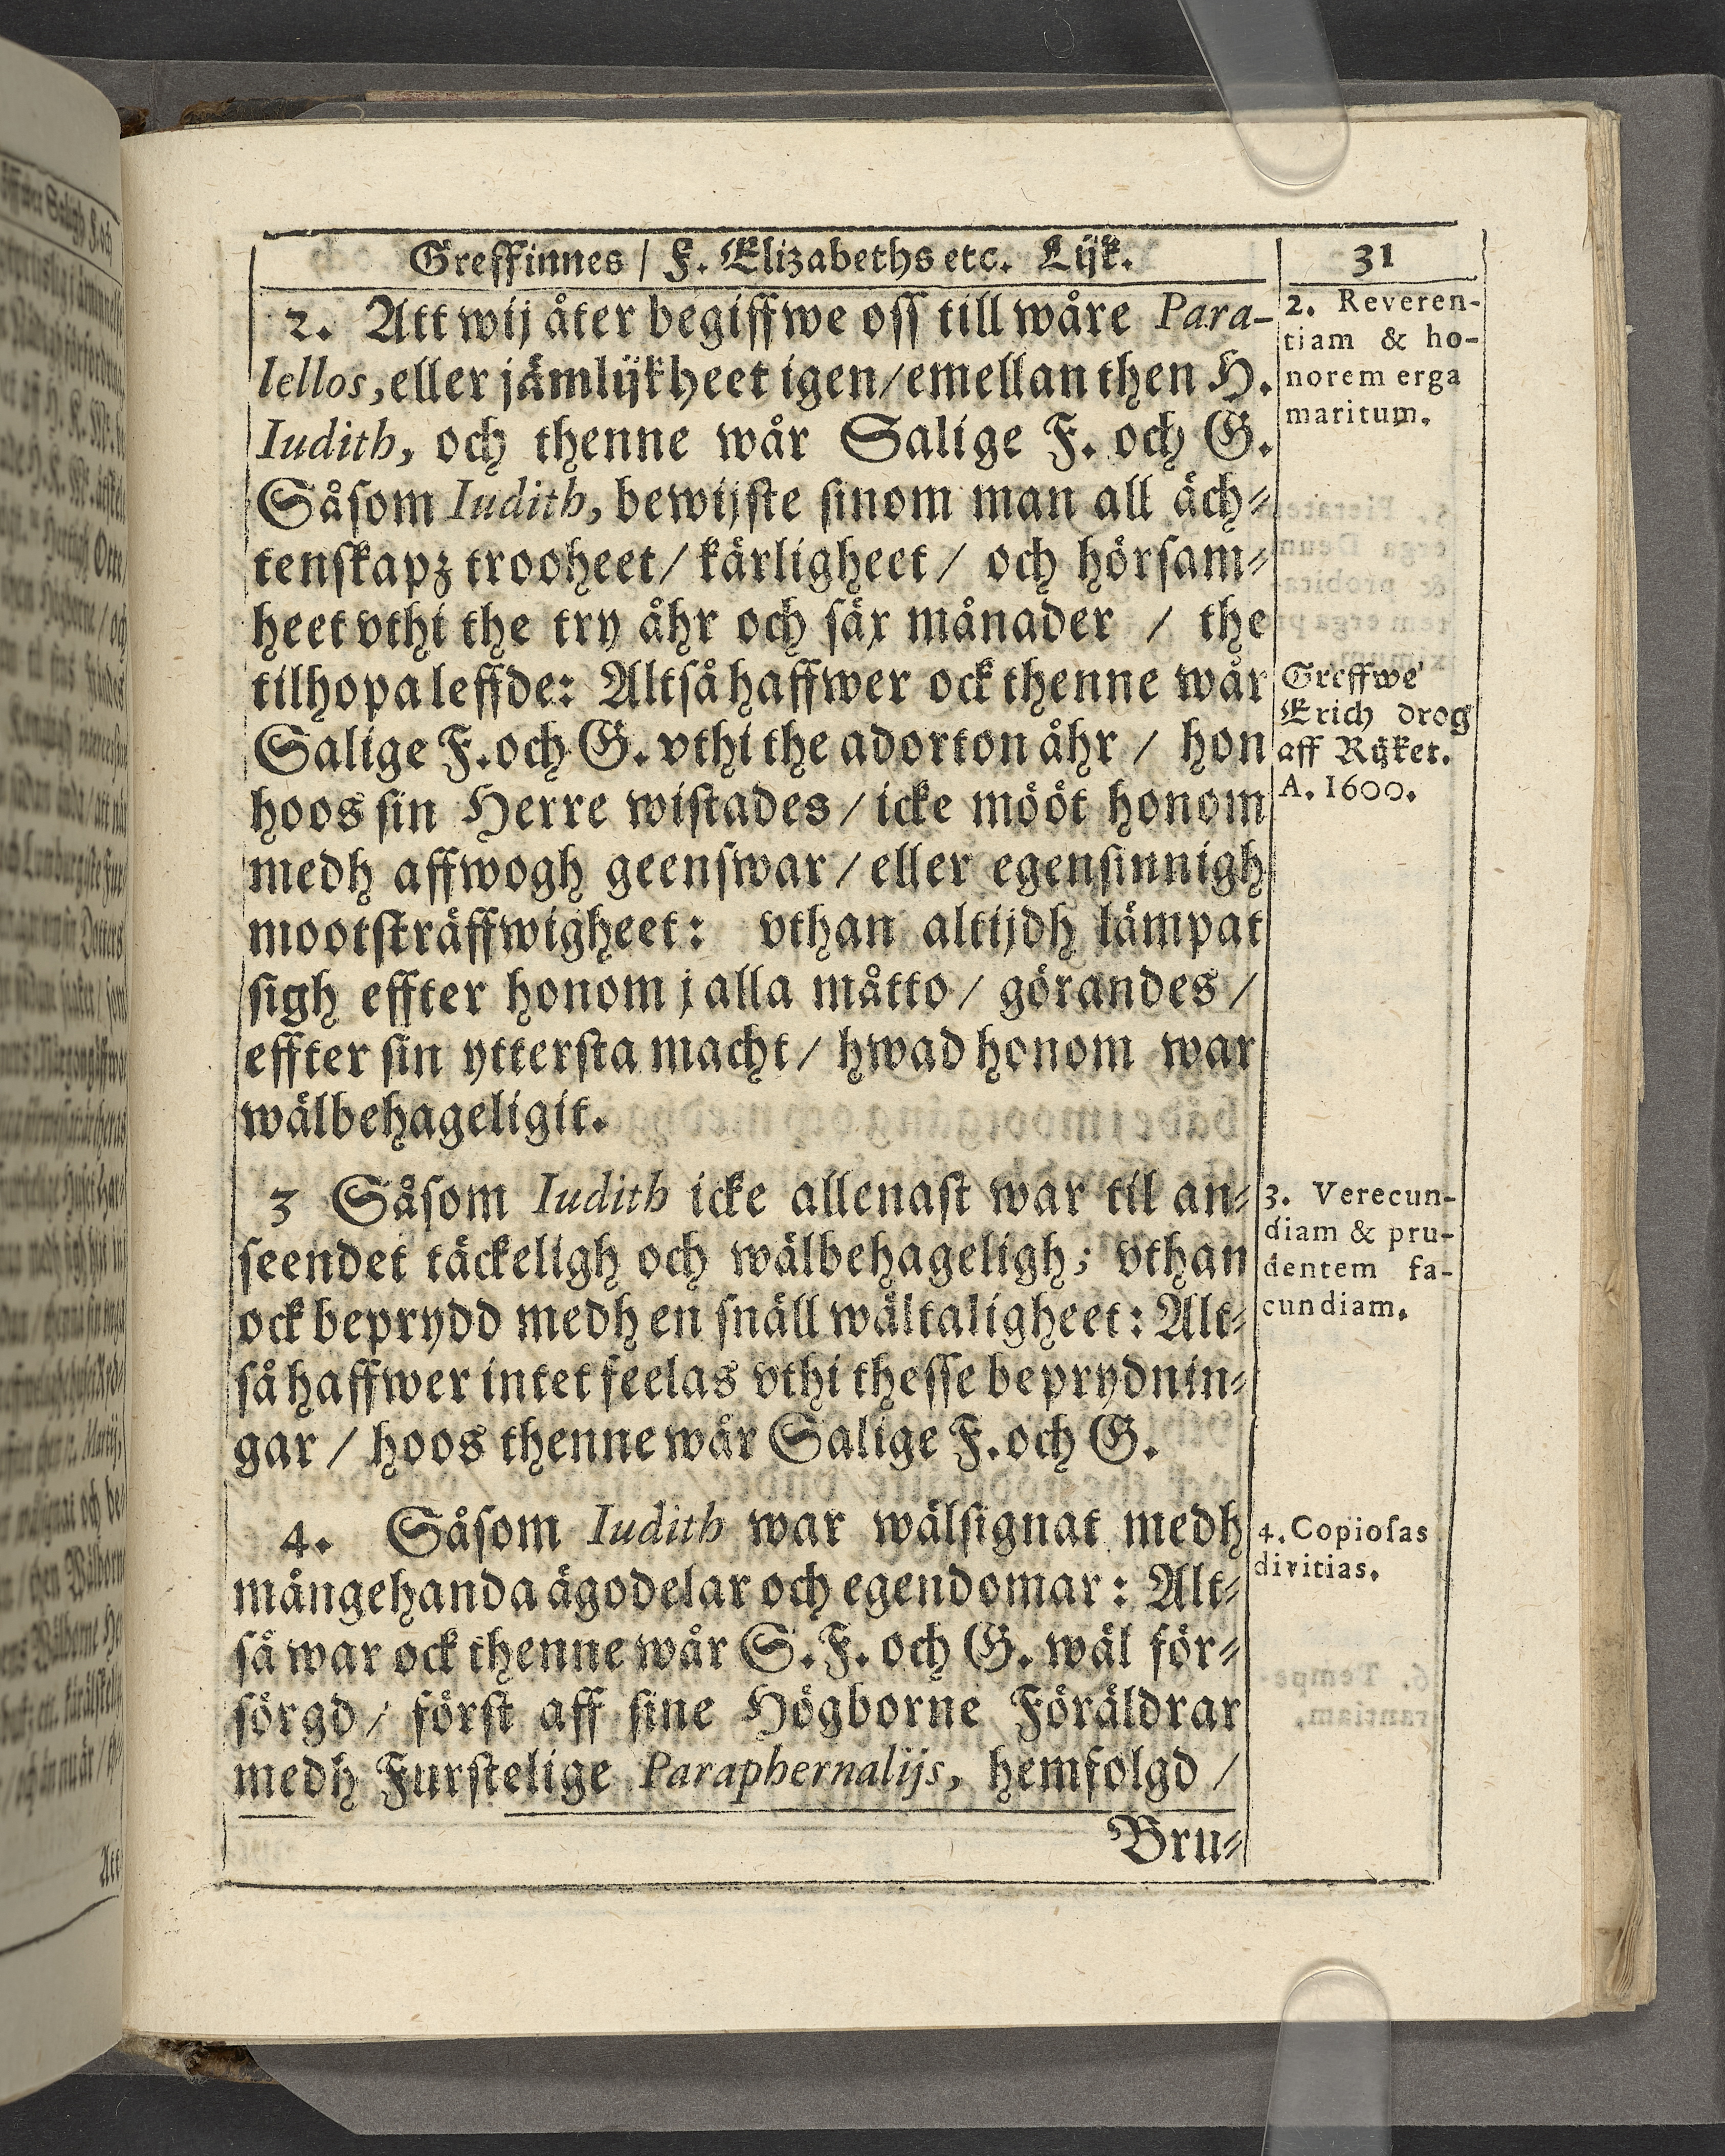 Greffinnes / F. Elizabeths etc. Lijk.
31
2. Att wij åter begiffwe oss till wåre Para-
lellos, eller jämlijkheet igen / emellan then H.
Iudith, och thenne wår Salige F. och G.
Såsom Iudith, bewijste sinom man all äch-
tenskapz trooheet / kärligheet / och hörsam-
heet vthi the try åhr och säx månader / the
tilhopa leffde: Altså haffwer ock thenne wår
Salige F. och G. vthi the adorton åhr / hon
hoos sin Herre wistades / icke mööt honom
medh affwogh geenswar / eller egensinnigh
mootsträffwigheet: vthan altijdh lämpat
sigh effter honom j alla måtto / görandes /
effter sin yttersta macht / hwad honom war
wälbehageligit.
3 Såsom Iudith icke allenast war til an-
seendet täckeligh och wälbehageligh; vthan
ock beprydd medh en snäll wältaligheet: Alt-
så haffwer intet feelas vthi thesse beprydnin-
gar / hoos thenne wår Salige F. och G.
4. Såsom Iudith war wälsignat medh
mångehanda ägodelar och egendomar: Alt-
så war ock thenne wår S. F. och G. wäl för-
sörgd / först aff sine Högborne Föräldrar
medh Furstelige Paraphernalijs, hemfolgd /
Bru-
2. Reveren-
tiam & ho-
norem erga
maritum.
Greffwe
Erich drog
aff Rijket.
A. 1600.
3. Verecun-
diam & pru-
dentem fa-
cundiam.
4. Copiosas
divitias.